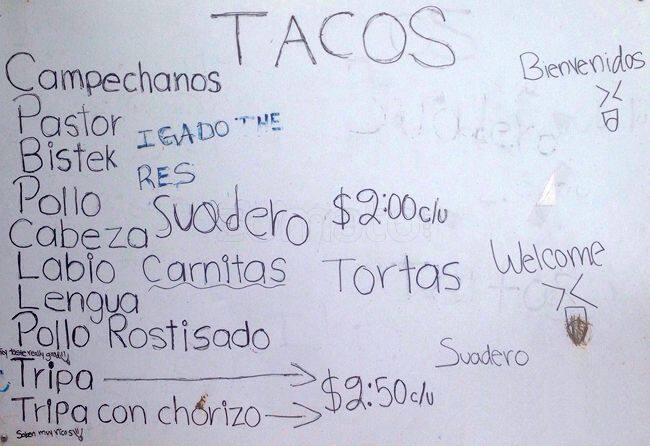 TACOS
Campechanos
Bienvenidos
Pastor
IGADO THE
Bistek
RES
Pollo
Suadero $2:00 c/u
Cabeza
Labio Carnitas Tortas
Welcome
Lengua
Pollo Rostisado
taste really good
Suadero
Tripa $2:50 c/u
Tripa con chorizo
Saben muy ricos